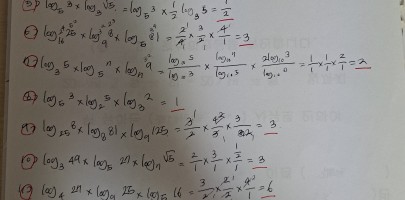 ③ log₅3 × log₃√5 = log₅3 × 1/2 log₃5 = 1/2
log₁₆25 × log₉8 × log₅81 = 2/4 × 3/2 × 4/1 = 3
log₃5 × log₅ⁿ × logₙ9 = log₁₀5/log₁₀3 × log₁₀ⁿ/log₁₀5 × 2log₁₀3/log₁₀ⁿ = 1/1 × 1/1 × 2/1 = 2
log₅3 × log₂5 × log₃2 = 1
log₂₅8 × log₈81 × log₉125 = 3
log₃49 × log₅27 × log₇√5 = 2/1 × 3/1 × 1/2/1 = 3
log₄27 × log₉25 × log₅16 = 3/2 × 2/2 × 4/1 = 6